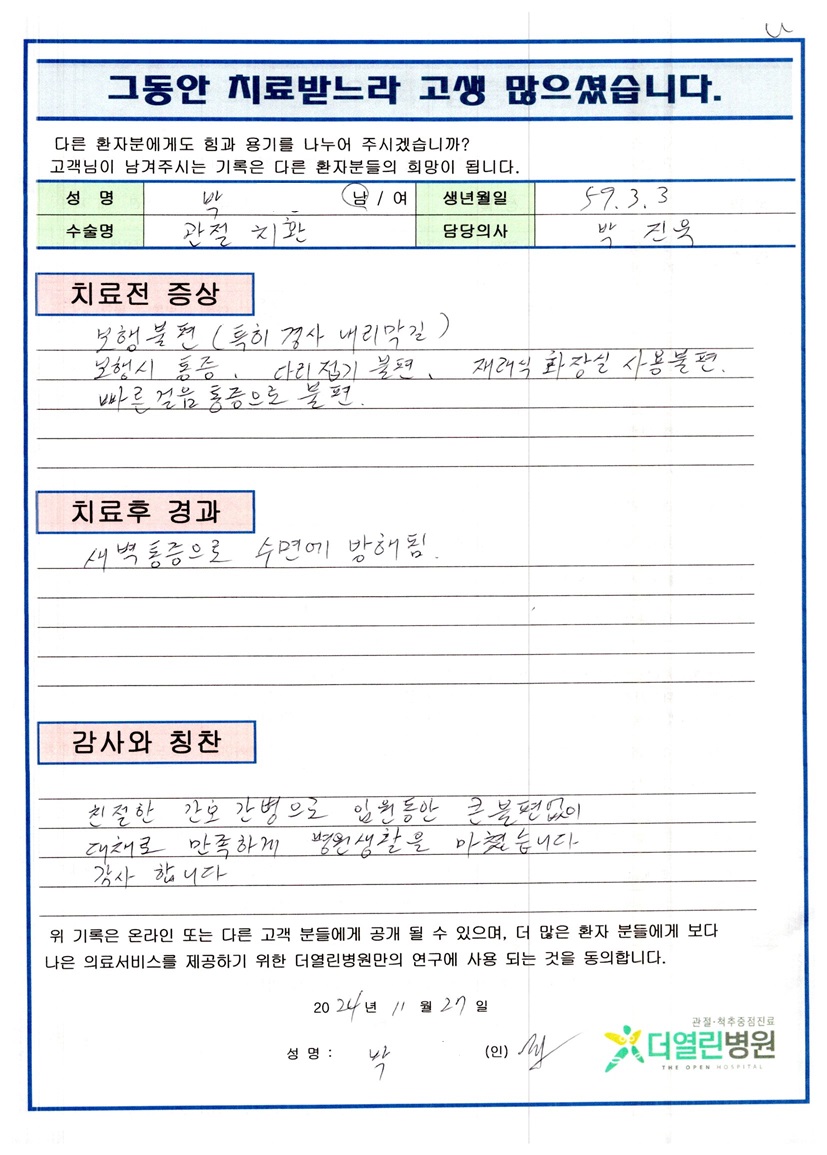 그동안 치료받느라 고생 많으셨습니다.
다른 환자분에게도 힘과 용기를 나누어 주시겠습니까?
고객님이 남겨주시는 기록은 다른 환자분들의 희망이 됩니다.
성 명 박 남 / 여 생년월일 59.3.3
수술명 관절 치환 담당의사 박 진욱
치료전 증상
보행불편 (특히 경사 내리막길)
보행시 통증, 다리접기 불편, 재래식 화장실 사용불편.
빠른걸음 통증으로 불편.
치료후 경과
새벽통증으로 수면에 방해됨.
감사와 칭찬
친절한 간호 간병으로 입원동안 큰불편없이
대체로 만족하게 병원생활을 마쳤습니다
감사 합니다
위 기록은 온라인 또는 다른 고객 분들에게 공개 될 수 있으며, 더 많은 환자 분들에게 보다
나은 의료서비스를 제공하기 위한 더열린병원만의 연구에 사용 되는 것을 동의합니다.
2024년 11월 27일
성 명 : 박 (인)
관절·척추중점진료
더열린병원
THE OPEN HOSPITAL